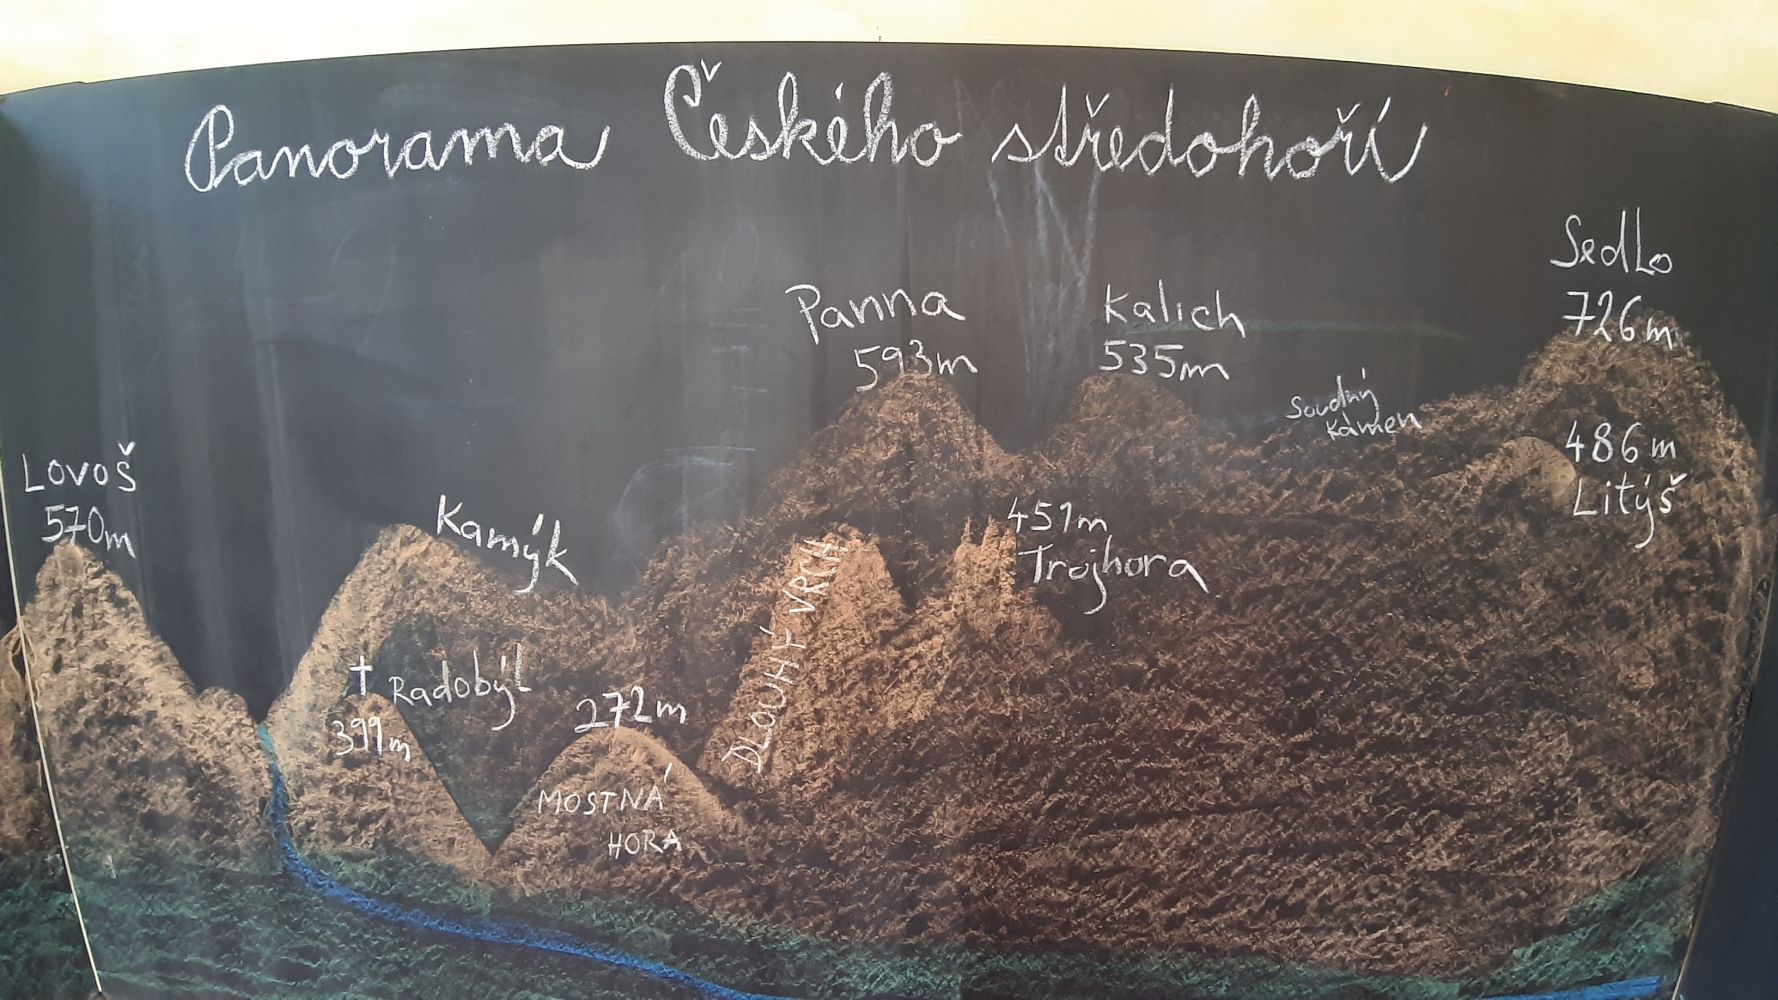 Panorama Českého středohoří
Sedlo
726m
Panna
593m
Kalich
535m
Soudný
kámen
486m
Litýš
Lovoš
570m
Kamýk
451m
Trojhora
DLOUHÝ VRCH
Radobýl
399m
272m
MOSTNÁ
HORA